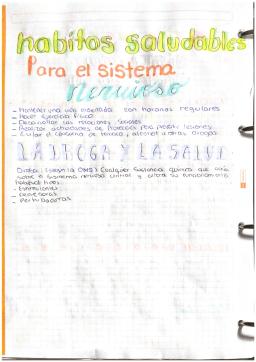 habitos saludables
Para el sistema
Nervioso
- Mantener una vida ordenada con horarios regulares
- Hacer ejercicio fisico
- Desarrollar las relaciones sociales
- Realizar actividades de Proteccion para prevenir lesiones
- Evitar el consumo de tabaco, alcohol u otras drogas
LA DROGA Y LA SALUD
Droga: (según la OMS) Cualquier sustancia química que actúa
sobre el sistema nervioso central y altera su funcionamiento
- Depresoras
- Perturbadoras